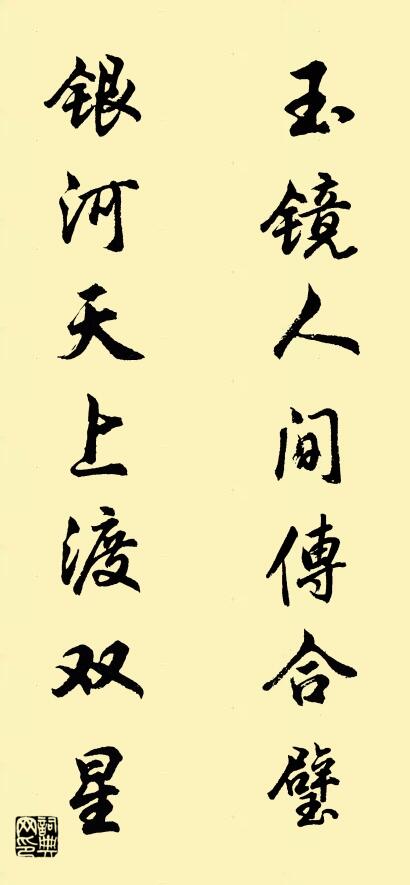 玉镜人间傳合璧
银河天上渡双星
詞典网印